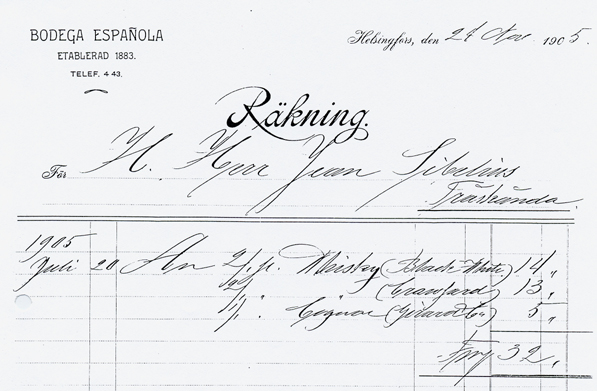 BODEGA ESPAÑOLA
ETABLERAD 1883.
TELEF. 4 43.
Helsingfors, den 24 Nov. 1905.
Räkning.
För H. Herr Jean Sibelius
Träskända.
1905
Juli 20 An 2/1 fl. Whisky (Black & White) 14 "
(Crawford) 13 "
1/1 " Cognac (Girard & Co) 5 "
Fmk 32 "